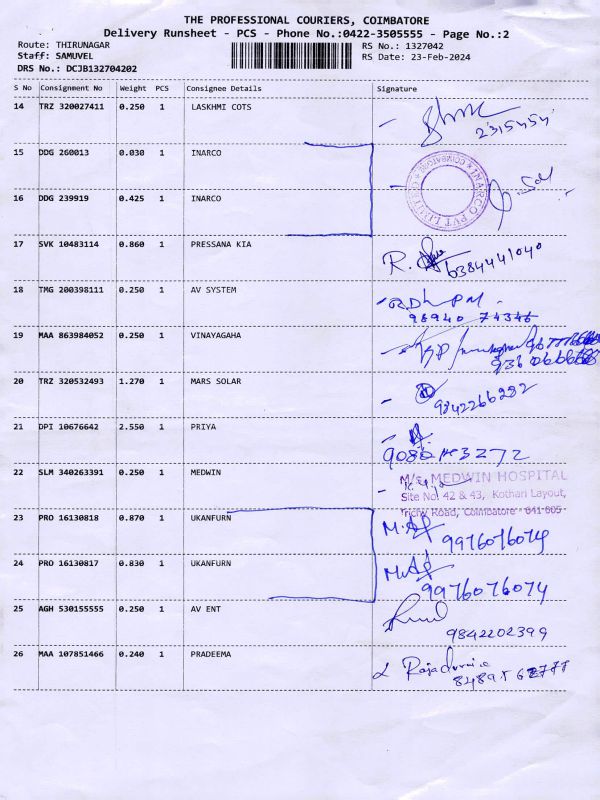 THE PROFESSIONAL COURIERS, COIMBATORE
Delivery Runsheet - PCS - Phone No.:0422-3505555 - Page No.:2
Route: THIRUNAGAR
RS No.: 1327042
Staff: SAMUVEL
RS Date: 23-Feb-2024
DRS No.: DCJB132704202
S No Consignment No Weight PCS Consignee Details Signature
14 TRZ 320027411 0.250 1 LASKHMI COTS
2315454
15 DDG 260013 0.030 1 INARCO
INARCO PVT LIMITED COIMBATORE
16 DDG 239919 0.425 1 INARCO
17 SVK 10483114 0.860 1 PRESSANA KIA
R.
6384441040
18 TMG 200398111 0.250 1 AV SYSTEM
98940 74346
19 MAA 863984052 0.250 1 VINAYAGAHA
20 TRZ 320532493 1.270 1 MARS SOLAR
9842266282
21 DPI 10676642 2.550 1 PRIYA
22 SLM 340263391 0.250 1 MEDWIN
M/s. MEDWIN HOSPITAL
Site No. 42 & 43, Kothari Layout,
Trichy Road, Coimbatore - 641 005
23 PRO 16130818 0.870 1 UKANFURN
9976076074
24 PRO 16130817 0.830 1 UKANFURN
9976076074
25 AGH 530155555 0.250 1 AV ENT
9842202399
26 MAA 107851466 0.240 1 PRADEEMA